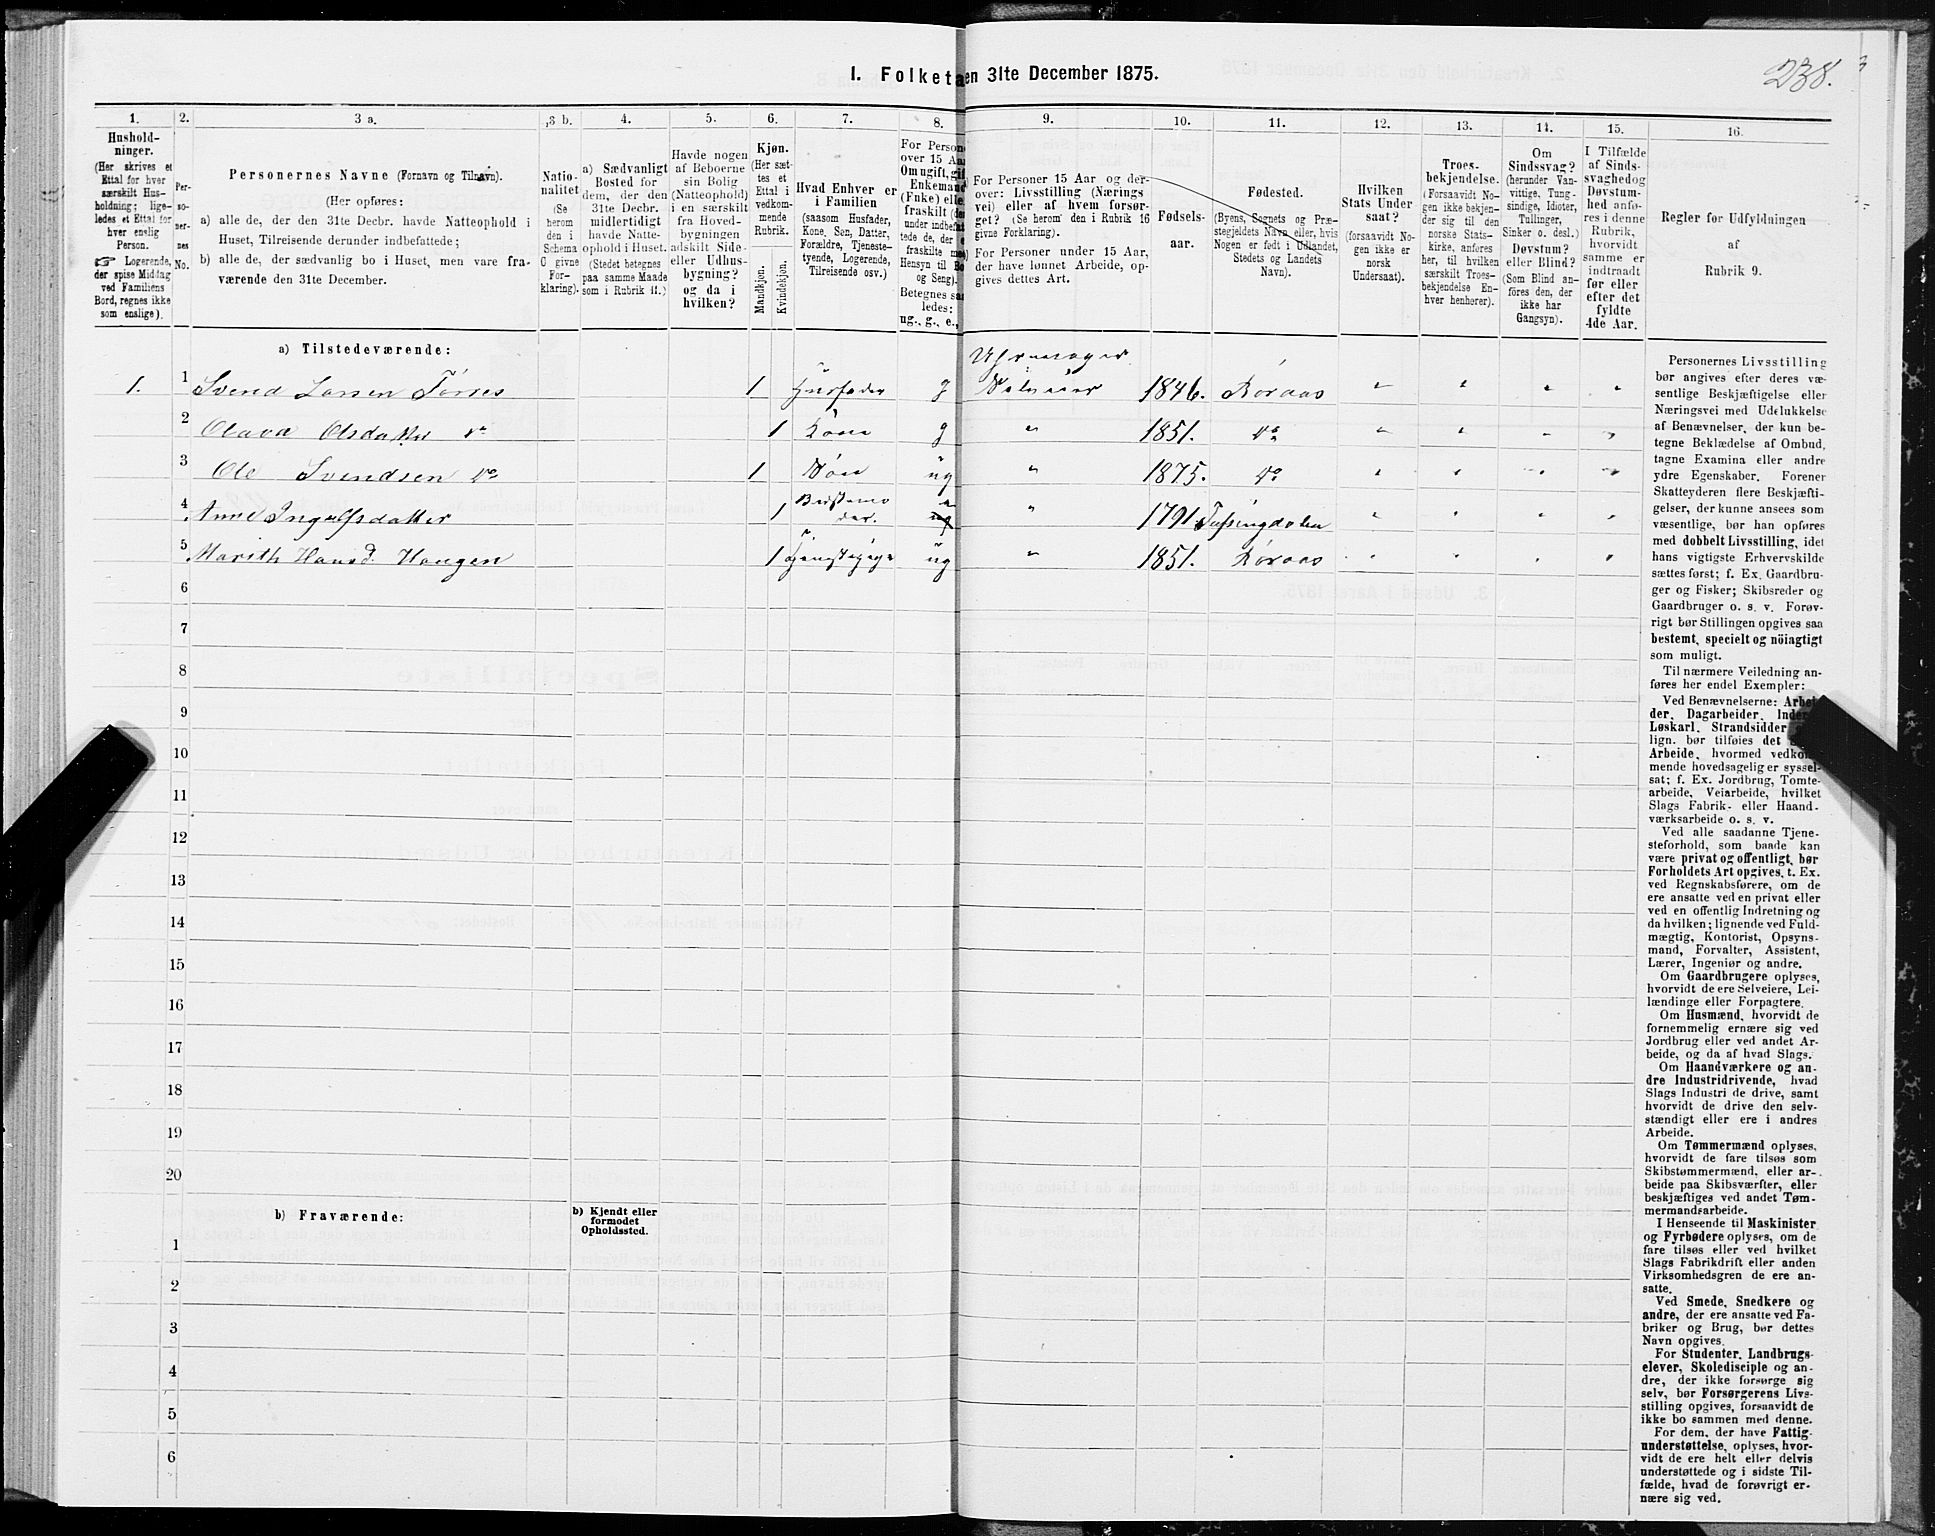 I. Folketa en 31te December 1875.
238.
1.
Hushold-
ninger.
(Her skrives et
Ettal for hver
særskilt Hus-
holdning; lige-
ledes et Ettal for
hver enslig
Person.
☞ Logerende,
der spise Middag
ved Familiens
Bord, regnes ikke
som enslige).
2.
Per-
so-
ner-
nes
No.
3 a.
Personernes Navne (Fornavn og Tilnavn).
(Her opføres:
a) alle de, der den 31te Decbr. havde Natteophold i
Huset, Tilreisende derunder indbefattede;
b) alle de, der sædvanlig bo i Huset, men vare fra-
værende den 31te December.
3 b.
Natio-
nalitet
(Se
herom
den i
Schema
O givne
For-
klaring).
4.
a) Sædvanligt
Bosted for
dem, der den
31te Decbr.
midlertidigt
havde Natte-
ophold i Huset.
(Stedet betegnes
paa samme Maade
som i Rubrik 11.)
5.
Havde nogen
af Beboerne
sin Bolig
(Natteophold)
i en særskilt
fra Hoved-
bygningen
adskilt Side-
eller Udhus-
bygning?
og da i
hvilken?
6.
Kjøn.
(Her sæt-
tes et
Ettal i
vedkom-
mende
Rubrik.
Mandkjøn.
Kvindekjøn.
7.
Hvad Enhver er
i Familien
(saasom Husfader,
Kone, Søn, Datter,
Forældre, Tjeneste-
tyende, Logerende,
Tilreisende osv.)
8.
For Person
over 15 Aa
Om ugift, gif
Enkemand
(Enke) elle
fraskilt (de
under indbefat
tede de, der e
fraskilte me
Hensyn til Bo
og Seng).
Betegnes saa
ledes:
ug., g., e.,
9.
For Personer 15 Aar og der-
over: Livsstilling (Nærings
vei) eller af hvem forsør-
get? (Se herom den i Rubrik 16
givne Forklaring).
For Personer under 15 Aar,
der have lønnet Arbeide, op-
gives dettes Art.
10.
Fødsels-
aar.
11.
Fødested.
(Byens, Sognets og Præ-
stegjeldets Navn, eller, hvis
Nogen er født i Udlandet,
Stedets og Landets
Navn).
12.
Hvilken
Stats Under
saat?
(forsaavidt No-
gen ikke er
norsk
Undersaat).
13.
Troes-
bekjendelse.
(Forsaavidt No-
gen ikke bekjen-
der sig til den
norske Stats-
kirke, anføres
her, til hvilken
særskilt Troes-
bekjendelse En-
hver henhører).
14.
Om
Sindssvag?
(herunder Van-
vittige, Tung-
sindige, Idioter,
Tullinger,
Sinker o. desl.)
Døvstum?
eller Blind?
(Som Blind an-
føres den, der
ikke har
Gangsyn).
15.
I Tilfælde
af Sinds-
svaghed og
Døvstum-
hed anfø-
res i denne
Rubrik,
hvorvidt
samme er
indtraadt
før eller
efter det
fyldte
4de Aar.
16.
Regler for Udfyldningen
af
Rubrik 9.
a) Tilstedeværende:
1. 1 Svend Larsen Tørres 1 Husfader g Selveier 1846. Røraas " " " "
2 Olava Olsdatter do 1 Kone g " 1851. do " " " "
3 Ole Svendsen do 1 Søn ug " 1875. do " " " "
4 Anne Ingulfsdatter 1 Bestemo
der. e " 1791 " " " "
5 Marith Hansd. Haugen 1 ug " 1851. Røraas " " " "
6
7
8
9
10
11
12
13
14
15
16
17
18
19
20
b) Fraværende:
b) Kjendt eller
formodet
Opholdssted.
1
2
3
4
5
6
Personernes Livsstilling
bør angives efter deres væ-
sentlige Beskjæftigelse eller
Næringsvei med Udelukkelse
af Benævnelser, der kun be-
tegne Beklædelse af Ombud,
tagne Examina eller andre
ydre Egenskaber. Forener
Skatteyderen flere Beskjæfti-
gelser, der kunne ansees som
væsentlige, bør han opføres
med dobbelt Livsstilling, idet
hans vigtigste Erhvervskilde
sættes først; f. Ex. Gaardbru-
ger og Fisker; Skibsreder og
Gaardbruger o. s. v. Forøv-
rigt bør Stillingen opgives saa
bestemt, specielt og nöiagtigt
som muligt.
Til nærmere Veiledning an-
føres her endel Exempler:
Ved Benævnelserne: Arbei
der, Dagarbeider, Inder
Løskarl, Strandsidder
lign. bør tilføies det
Arbeide, hvormed vedkom-
mende hovedsagelig er syssel-
sat; f. Ex. Jordbrug, Tomte-
arbeide, Veiarbeide, hvilket
Slags Fabrik- eller Haand-
værksarbeide o. s. v.
Ved alle saadanne Tjene-
steforhold, som baade kan
være privat og offentligt, bør
Forholdets Art opgives, t. Ex.
ved Regnskabsførere, om de
ere ansatte ved en privat eller
ved en offentlig Indretning og
da hvilken; lignende ved Fuld-
mægtig, Kontorist, Opsyns-
mand, Forvalter, Assistent,
Lærer, Ingeniør og andre.
Om Gaardbrugere oplyses,
hvorvidt de ere Selveiere, Lei-
lændinge eller Forpagtere.
Om Husmænd, hvorvidt de
fornemmelig ernære sig ved
Jordbrug eller ved andet Ar-
beide, og da af hvad Slags.
Om Haandværkere og an-
dre Industridrivende, hvad
Slags Industri de drive, samt
hvorvidt de drive den selv-
stændigt eller ere i andres
Arbeide.
Om Tømmermænd oplyses,
hvorvidt de fare tilsøs som
Skibstømmermænd, eller ar-
beide paa Skibsværfter, eller
beskjæftiges ved andet Tøm-
mermandsarbeide.
I Henseende til Maskinister
og Fyrbødere oplyses, om de
fare tilsøs eller ved hvilket
Slags Fabrikdrift eller anden
Virksomhedsgren de ere an-
satte.
Ved Smede, Snedkere og
andre, der ere ansatte ved Fa-
briker og Brug, bør dettes
Navn opgives.
For Studenter, Landbrugs-
elever, Skoledisciple og an-
dre, der ikke forsørge sig
selv, bør Forsørgerens Livs-
stilling opgives, forsaavidt de
ikke bo sammen med denne.
For dem, der have Fattig-
understøttelse, oplyses, hvor-
vidt de ere helt eller delvis
understøttede og i sidste Til-
fælde, hvad de forøvrigt er-
nære sig ved.